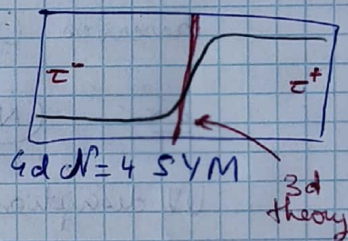 τ⁻ τ⁺
4d N=4 SYM
3d
theory